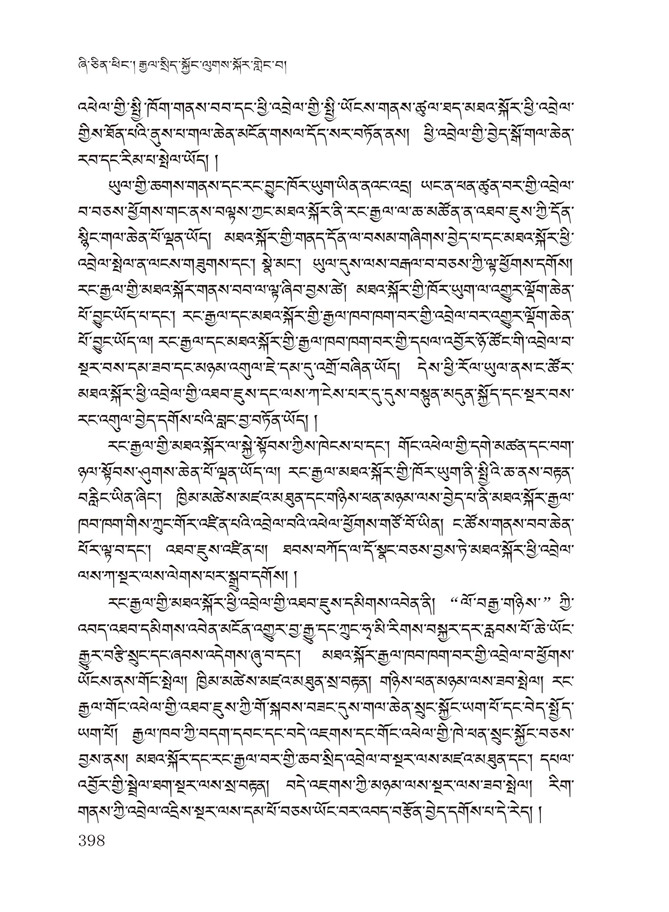 ཞི་ཅིན་ཕིང་། རྒྱལ་སྲིད་སྐྱོང་ལུགས་སྐོར་གླེང་བ།
འཕེལ་གྱི་སྤྱི་ཁོག་གནས་བབ་དང་ཕྱི་འབྲེལ་གྱི་སྤྱི་ཡོངས་གནས་ཚུལ་ཐད་མཐའ་སྐོར་ཕྱི་འབྲེལ་
གྱིས་ཐོན་པའི་ནུས་པ་གལ་ཆེན་མངོན་གསལ་དོད་སར་བཏོན་ནས། ཕྱི་འབྲེལ་གྱི་བྱེད་སྒོ་གལ་ཆེན་
རབ་དང་རིམ་པ་སྤེལ་ཡོད། །
ཡུལ་གྱི་ཆགས་གནས་དང་རང་བྱུང་ཁོར་ཡུག་ཡིན་ནའང་འདྲ། ཡང་ན་ཕན་ཚུན་བར་གྱི་འབྲེལ་
བ་བཅས་ཕྱོགས་གང་ནས་བལྟས་ཀྱང་མཐའ་སྐོར་ནི་རང་རྒྱལ་ལ་ཆ་མཚོན་ན་འཐབ་ཇུས་ཀྱི་དོན་
སྙིང་གལ་ཆེན་པོ་ལྡན་ཡོད། མཐའ་སྐོར་གྱི་གནད་དོན་ལ་བསམ་གཞིགས་བྱེད་པ་དང་མཐའ་སྐོར་ཕྱི་
འབྲེལ་སྤེལ་ན་ལངས་གཟུགས་དང་། སྣེ་མང་། ཡུལ་དུས་ལས་བརྒལ་བ་བཅས་ཀྱི་ལྟ་ཕྱོགས་དགོས།
རང་རྒྱལ་གྱི་མཐའ་སྐོར་གནས་བབ་ལ་ལྟ་ཞིབ་བྱས་ཚེ། མཐའ་སྐོར་གྱི་ཁོར་ཡུག་ལ་འགྱུར་ལྡོག་ཆེན་
པོ་བྱུང་ཡོད་པ་དང་། རང་རྒྱལ་དང་མཐའ་སྐོར་གྱི་རྒྱལ་ཁབ་ཁག་བར་གྱི་འབྲེལ་བར་འགྱུར་ལྡོག་ཆེན་
པོ་བྱུང་ཡོད་ལ། རང་རྒྱལ་དང་མཐའ་སྐོར་གྱི་རྒྱལ་ཁབ་ཁག་བར་གྱི་དཔལ་འབྱོར་ཉོ་ཚོང་གི་འབྲེལ་བ་
སྔར་བས་དམ་ཟབ་དང་མཉམ་འགུལ་ཇེ་དམ་དུ་འགྲོ་བཞིན་ཡོད། དེས་ཕྱི་རོལ་ཡུལ་ནས་ང་ཚོར་
མཐའ་སྐོར་ཕྱི་འབྲེལ་གྱི་འཐབ་ཇུས་དང་ལས་ཀ་ངེས་པར་དུ་དུས་བསྟུན་མདུན་སྐྱོད་དང་སྔར་བས་
རང་འགུལ་བྱེད་དགོས་པའི་བླང་བྱ་བཏོན་ཡོད། །
རང་རྒྱལ་གྱི་མཐའ་སྐོར་ལ་སྐྱེ་སྟོབས་ཀྱིས་ཁེངས་པ་དང་། གོང་འཕེལ་གྱི་དགེ་མཚན་དང་བག་
ཉལ་སྟོབས་ཤུགས་ཆེན་པོ་ལྡན་ཡོད་ལ། རང་རྒྱལ་མཐའ་སྐོར་གྱི་ཁོར་ཡུག་ནི་སྤྱིའི་ཆ་ནས་བརྟན་
བརླིང་ཡིན་ཞིང་། ཁྱིམ་མཚེས་མཛའ་མཐུན་དང་གཉིས་ཕན་མཉམ་ལས་བྱེད་པ་ནི་མཐའ་སྐོར་རྒྱལ་
ཁབ་ཁག་གིས་ཀྲུང་གོར་འཛིན་པའི་འབྲེལ་བའི་འཕེལ་ཕྱོགས་གཙོ་བོ་ཡིན། ང་ཚོས་གནས་བབ་ཆེན་
པོར་ལྟ་བ་དང་། འཐབ་ཇུས་འཛིན་པ། ཐབས་བཀོད་ལ་དོ་སྣང་བཅས་བྱས་ཏེ་མཐའ་སྐོར་ཕྱི་འབྲེལ་
ལས་ཀ་སྔར་ལས་ལེགས་པར་སྒྲུབ་དགོས། །
རང་རྒྱལ་གྱི་མཐའ་སྐོར་ཕྱི་འབྲེལ་གྱི་འཐབ་ཇུས་དམིགས་འབེན་ནི། “ལོ་བརྒྱ་གཉིས་” ཀྱི་
འབད་འཐབ་དམིགས་འབེན་མངོན་འགྱུར་བྱ་རྒྱུ་དང་ཀྲུང་ཧྭ་མི་རིགས་བསྐྱར་དར་རླབས་པོ་ཆེ་ཡོང་
རྒྱུར་བརྩི་སྲུང་དང་ཞབས་འདེགས་ཞུ་བ་དང་། མཐའ་སྐོར་རྒྱལ་ཁབ་ཁག་བར་གྱི་འབྲེལ་བ་ཕྱོགས་
ཡོངས་ནས་གོང་སྤེལ། ཁྱིམ་མཚེས་མཛའ་མཐུན་སྲ་བརྟན། གཉིས་ཕན་མཉམ་ལས་ཟབ་སྤེལ། རང་
རྒྱལ་གོང་འཕེལ་གྱི་འཐབ་ཇུས་ཀྱི་གོ་སྐབས་བཟང་དུས་གལ་ཆེན་སྲུང་སྐྱོང་ཡག་པོ་དང་བེད་སྤྱོད་
ཡག་པོ། རྒྱལ་ཁབ་ཀྱི་བདག་དབང་དང་བདེ་འཇགས་དང་གོང་འཕེལ་གྱི་ཁེ་ཕན་སྲུང་སྐྱོང་བཅས་
བྱས་ནས། མཐའ་སྐོར་དང་རང་རྒྱལ་བར་གྱི་ཆབ་སྲིད་འབྲེལ་བ་སྔར་ལས་མཛའ་མཐུན་དང་། དཔལ་
འབྱོར་གྱི་སྦྲེལ་ཐག་སྔར་ལས་སྲ་བརྟན། བདེ་འཇགས་ཀྱི་མཉམ་ལས་སྔར་ལས་ཟབ་སྤེལ། རིག་
གནས་ཀྱི་འབྲེལ་འདྲིས་སྔར་ལས་དམ་པོ་བཅས་ཡོང་བར་འབད་བརྩོན་བྱེད་དགོས་པ་དེ་རེད། །
398